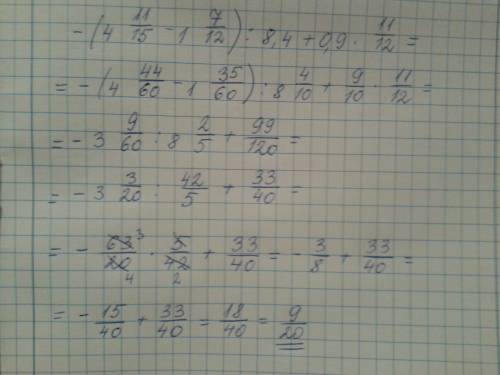 -(4 11/15 - 1 7/12) : 8,4 + 0,9 · 11/12 =
= -(4 44/60 - 1 35/60) : 8 4/10 + 9/10 · 11/12 =
= -3 9/60 : 8 2/5 + 99/120 =
= -3 3/20 : 42/5 + 33/40 =
= - 63 3/20 4 · 5/42 2 + 33/40 = - 3/8 + 33/40 =
= - 15/40 + 33/40 = 18/40 = 9/20